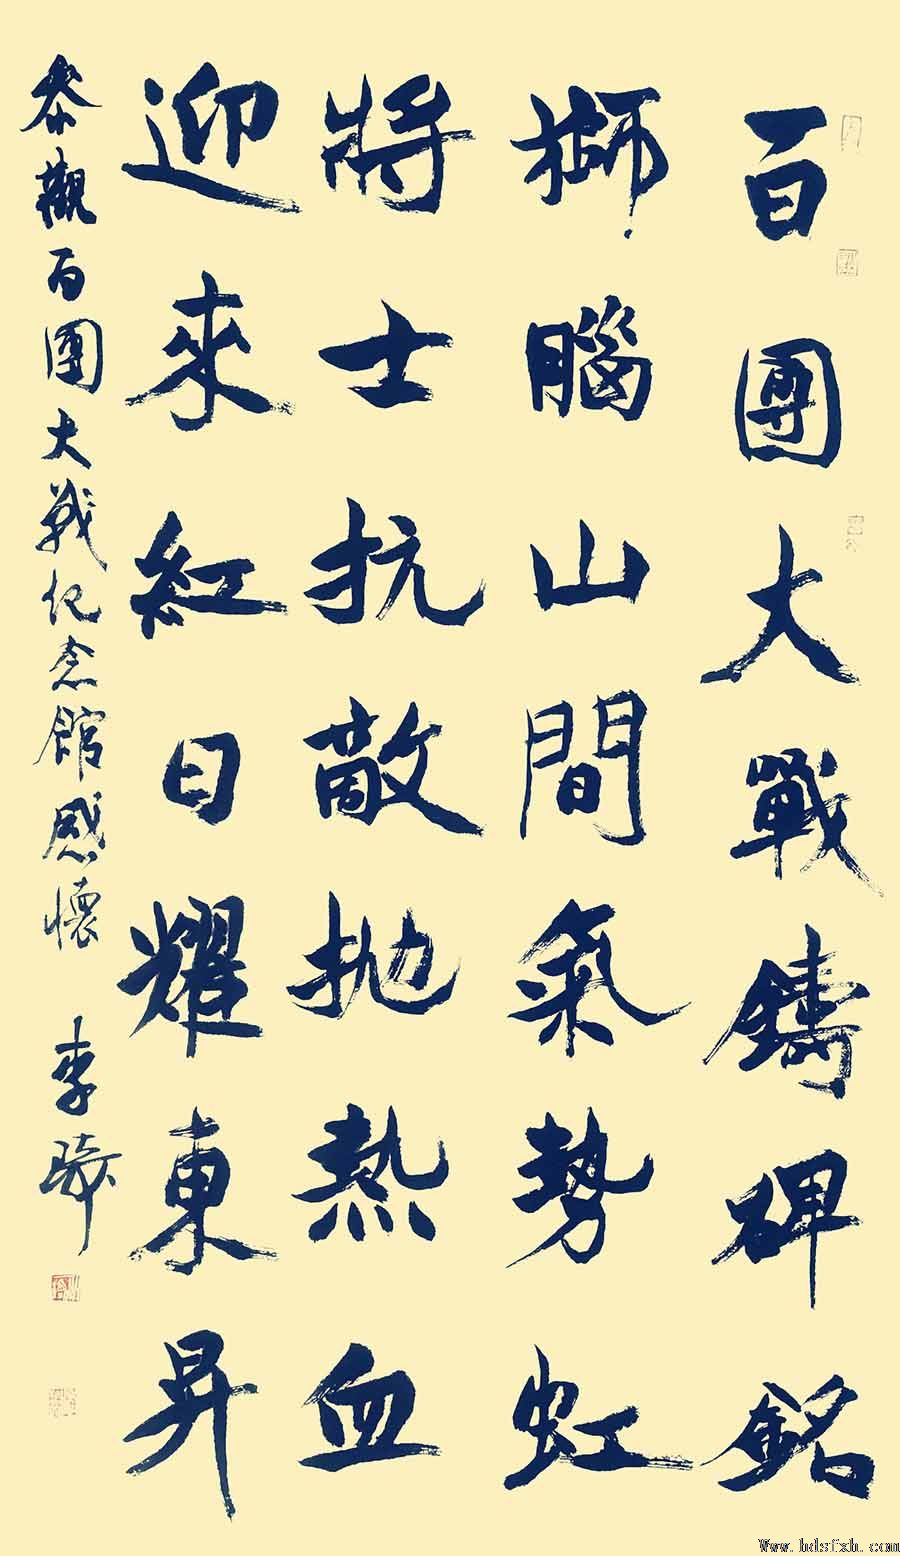 百團大戰鑄碑銘
獅腦山間氣勢虹
將士抗敵抛熱血
迎來紅日耀東昇
參觀百團大戰紀念館感懷 李琦
Www.hdsfxh.com